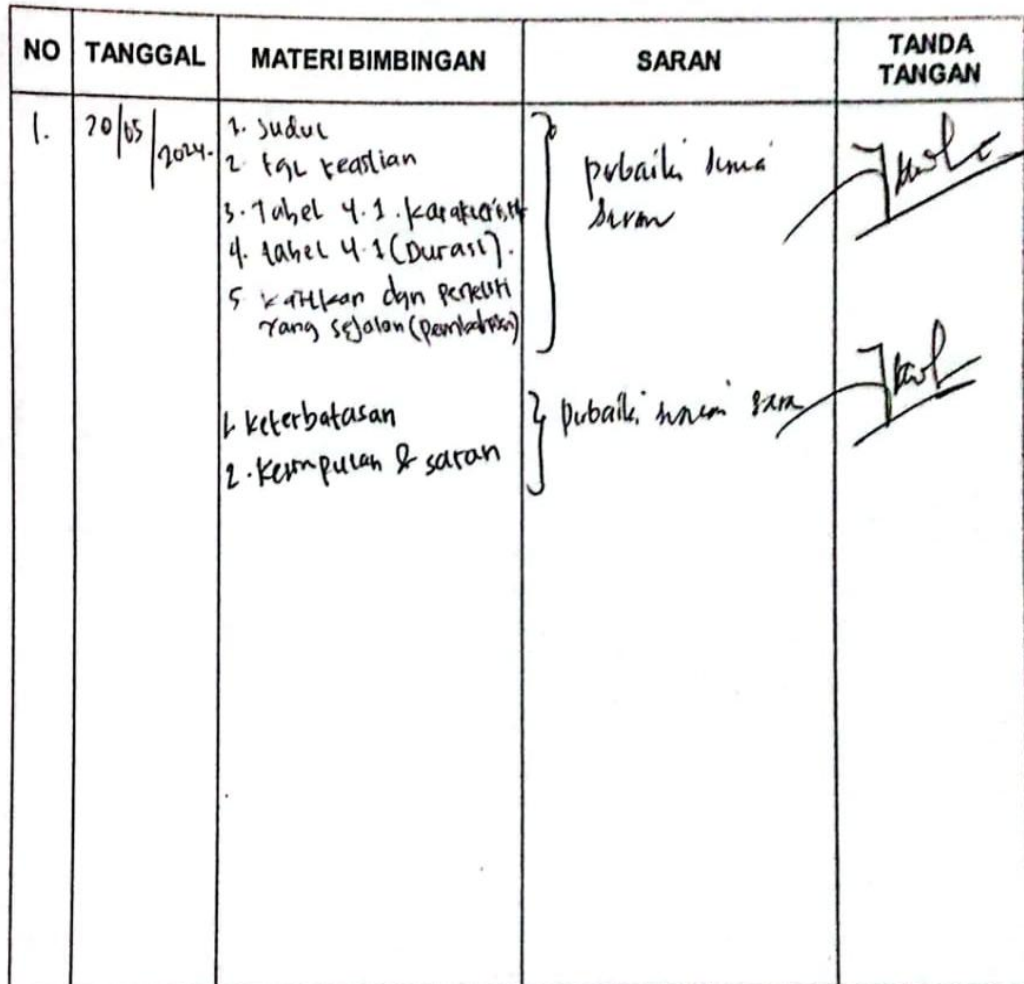 NO TANGGAL MATERI BIMBINGAN SARAN TANDA TANGAN
1. 20/05/2024. 1. Judul
2. tgl keaslian
3. Tabel 4.1. karakteristik
4. tabel 4.1 (Durasi).
5 kaitkan dgn peneliti
yang sejalan (pembahasan)
perbaiki semua
saran
1. keterbatasan
2. Kesimpulan & saran
perbaiki saran